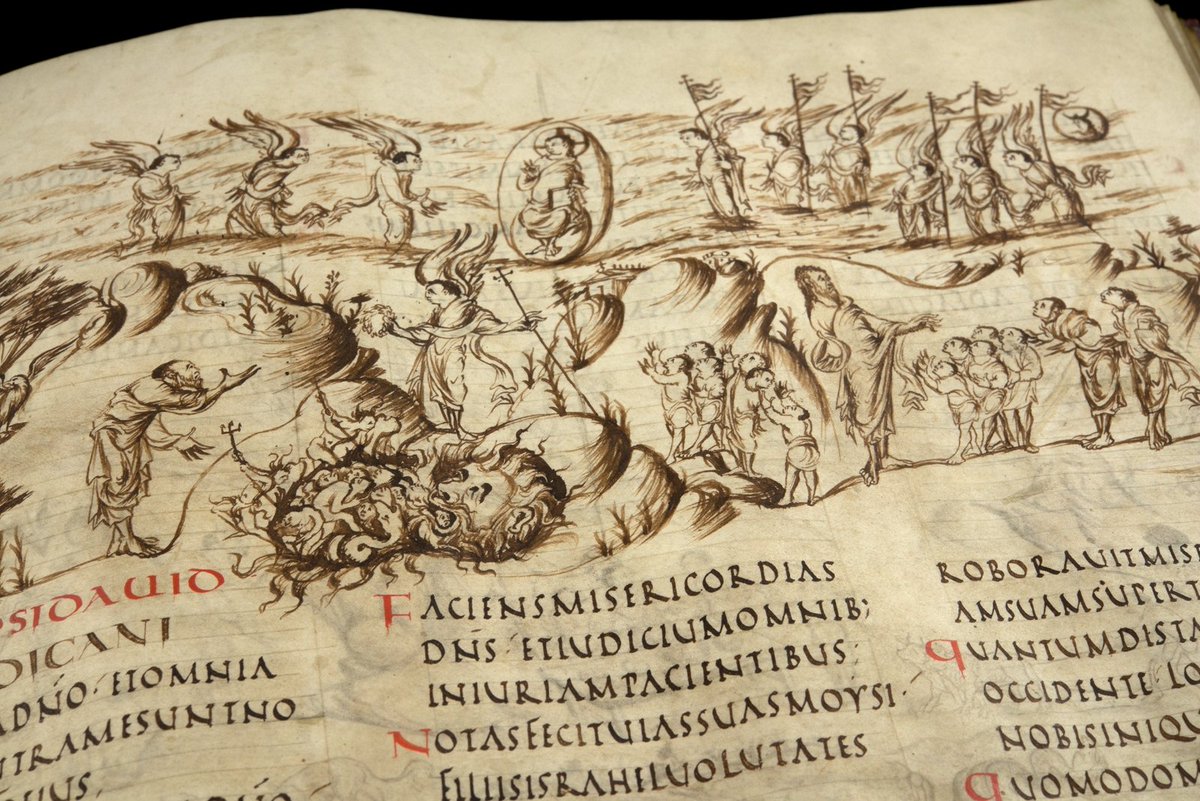 PSIDAUID
DICANI
ADNO·ETOMNIA
TRAMESUNTNO
IUS.
FACIENSMISERICORDIAS
DNS·ETIUDICIUMOMNIB;
INIURIAMPACIENTIBUS:
NOTASFECITUIASSUASMOYSI·
FILIISISRAHELUOLUTATES
ROBORAUITMISE
AMSUAMSUPERT
QUANTUMDISTA
OCCIDENTE·LO
NOBISINIQU
QUOMODOM